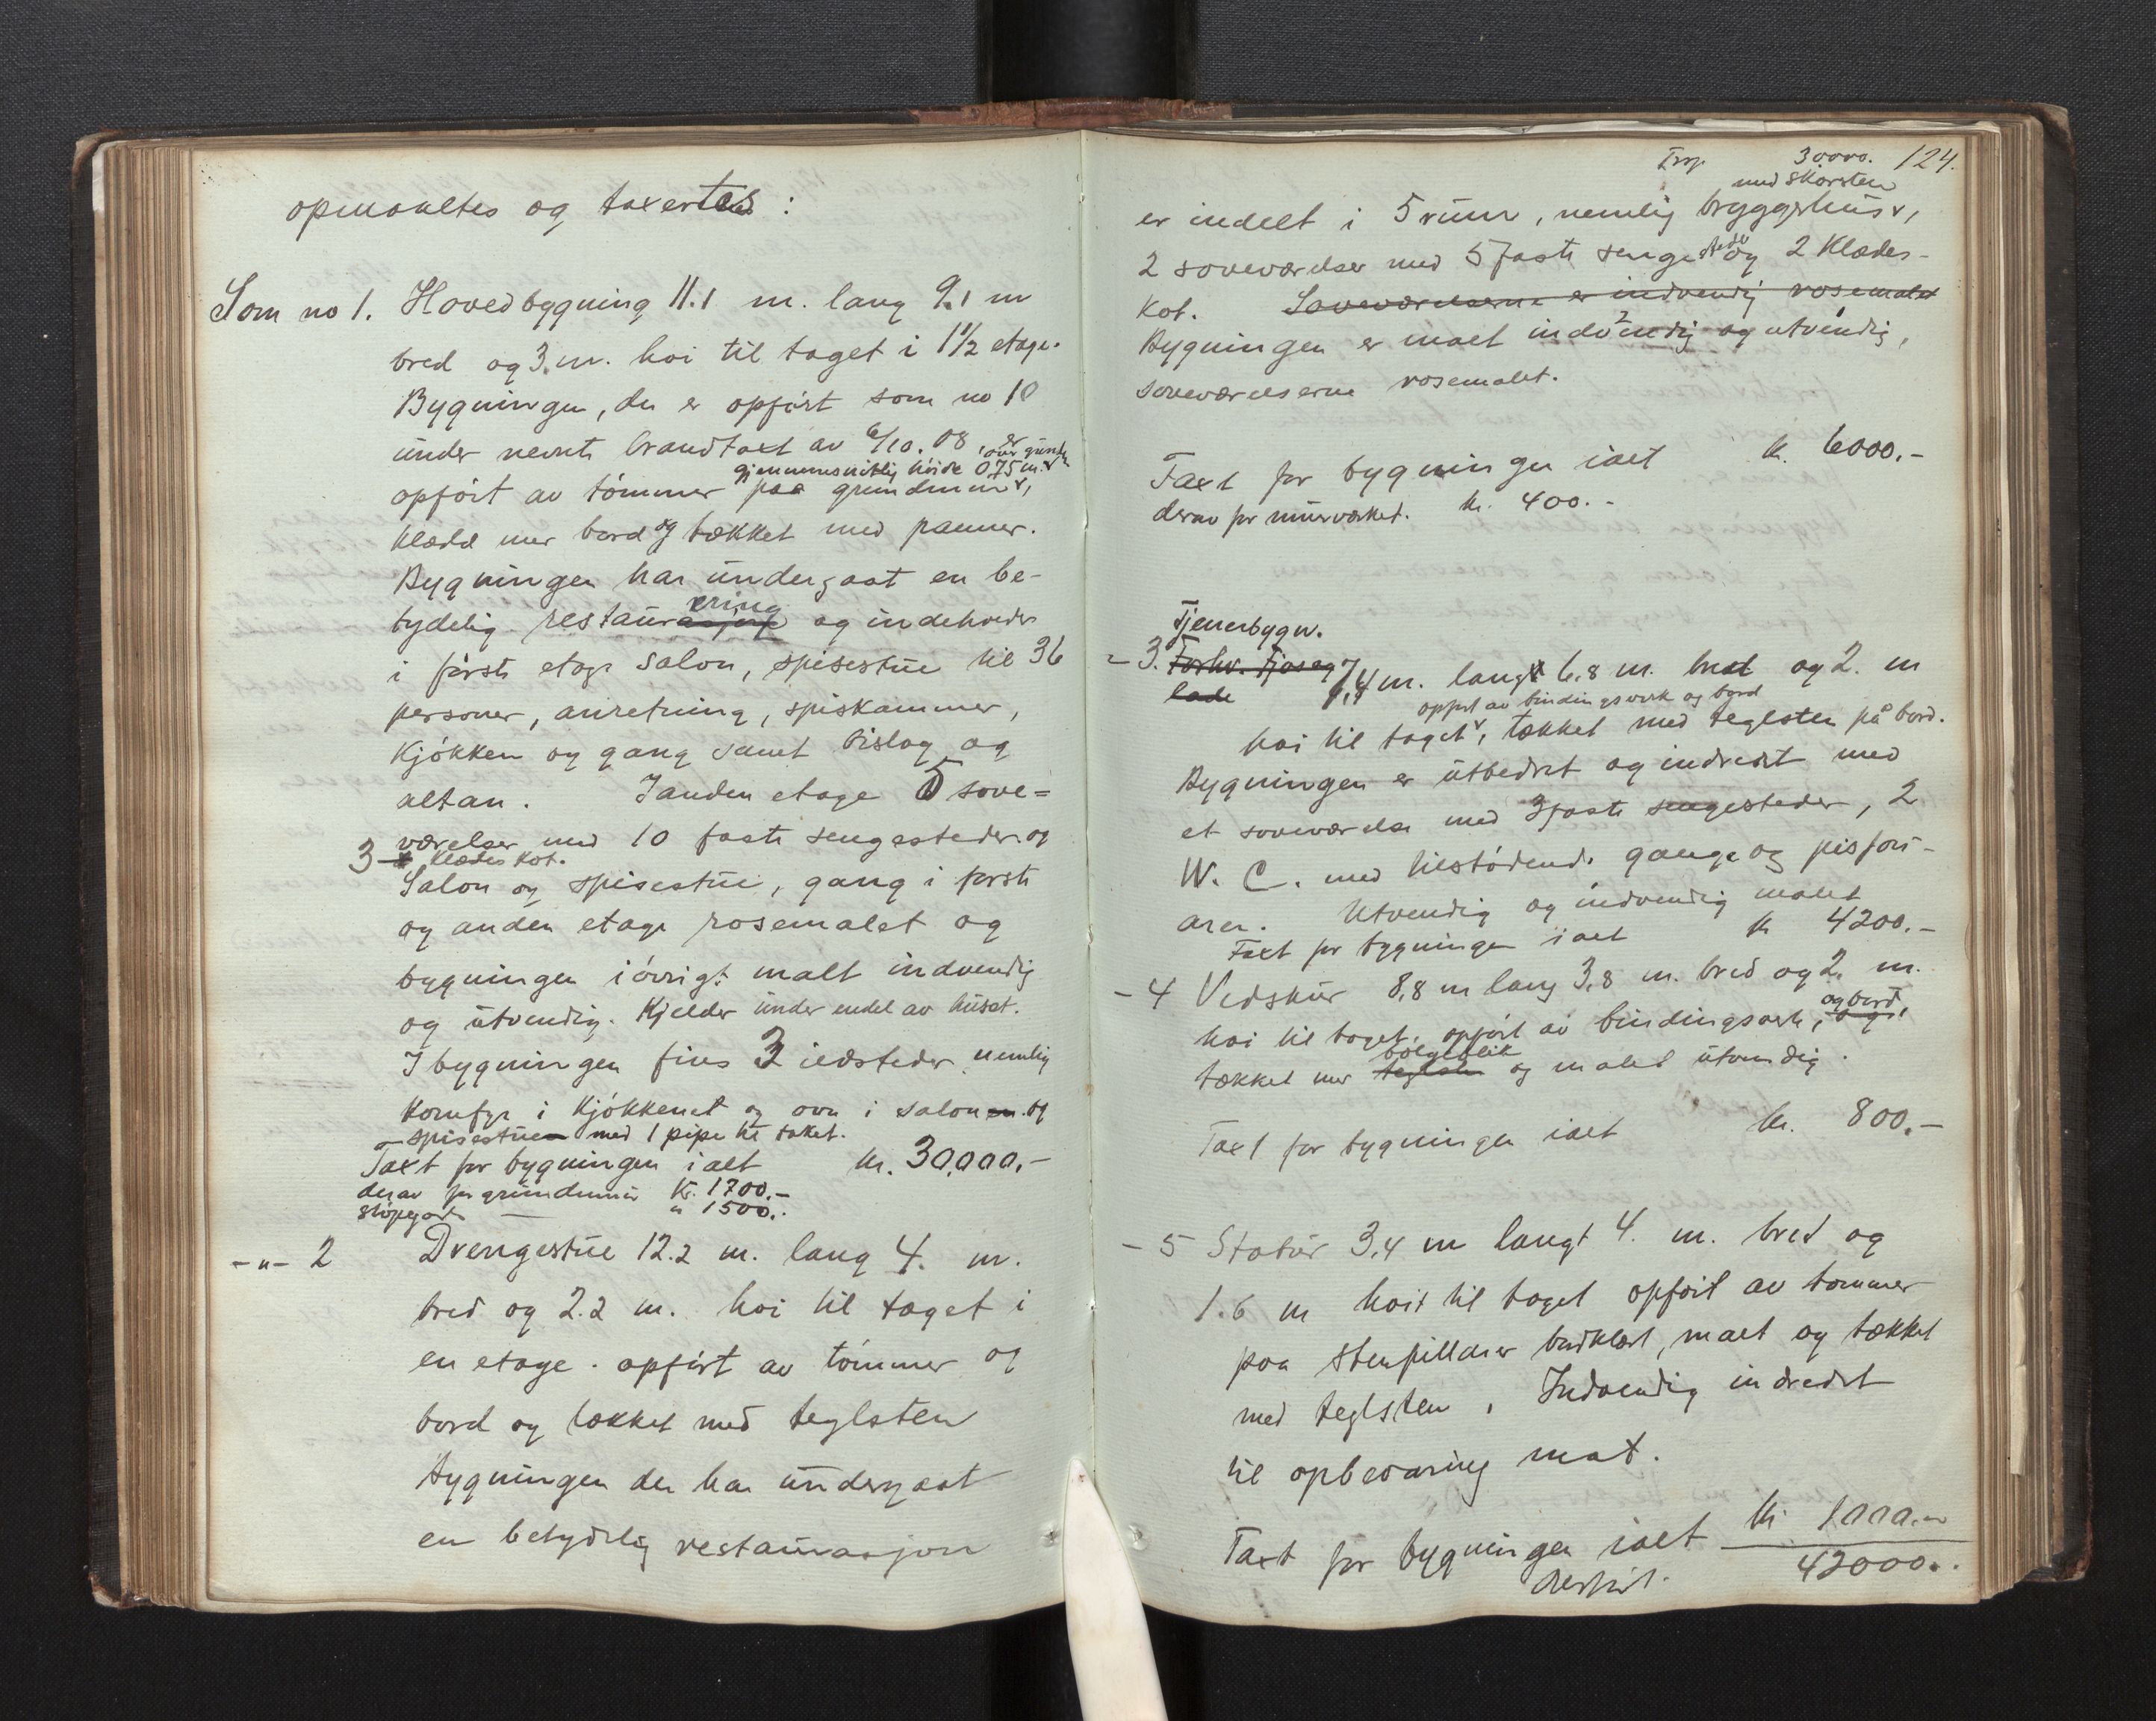 opmaaltes og taxertes :
Som no 1. Hovedbygning 11.1 m. lang 9.1 m
bred og 3. m. høi til taget i 1 1/2 etage.
Bygningen, der er opført som no 10
under nevnte brandtaxt av 6/10. 08, er
gjennemsnitlig høide 0.75 m. over grunden
opført av tømmer paa grundmur,
klædd med bord og tækket med panner.
Bygningen har undergaat en be-
tydelig restaurering og indeholder
i første etage salon, spisestue til 36
personer, anretning, spiskammer,
kjøkken og gang samt bislag og
altan. I anden etage 5 sove=
værelser med 10 faste sengesteder og
3 klædeskot.
Salon og spisestue, gang i første
og anden etage rosemalet og
bygningen iøvrigt malt indvendig
og utvendig. Kjelder under endel av huset.
I bygningen fins 3 ildsteder nemlig
komfyr i kjøkkenet og ovn i salon og
spisestue med 1 pipe til taket.
Taxt for bygningen ialt kr. 30,000.-
derav for grundmur Kr. 1700.-
" 1500.-
-"- 2 Drengestue 12.2 m. lang 4. m.
bred og 2.2 m. høi til taget i
en etage. opført av tømmer og
bord og tækket med teglsten
Bygningen der har undergaat
en betydelig restaurasjon
Trsp 30000. 124.
med skorsten
er indelt i 5 rum, nemlig bryggerhus,
2 soveværelser med 5 faste sengesteder og 2 klædes-
kot. Soveværelserne er indvendig rosemalet
Bygningen er malt indvendig og utvendig,
soveværelserne rosemalet.
Taxt for bygningen ialt kr. 6000.-
derav for murværket. kr. 400.-
Tjenerbygn.
- 3. Forhv. Fjos og 7,4 m. lang 6,8 m. bred og 2. m
lade
opført av bindingsverk og bord
høi til taget, tækket med teglsten på bord.
Bygningen er utbedret og indredet med
et soveværelse med 3 faste sengesteder, 2
W. C. med tilstødende gange og pissoir-
arer. Utvendig og indvendig malet
Taxt for bygningen ialt kr 4200.-
- 4 Vedskur 8,8 m lang 3,8 m. bred og 2. m.
høi til taget, opført av bindingsverk, og bord,
tækket med teglsten bølgeblik og malet utvendig.
Taxt for bygningen ialt kr. 800.-
- 5 Stabur 3,4 m langt 4. m. bred og
1.6 m høit til taget opført av tømmer
paa stenpillarer bordklædt, malt og tækket
med teglsten, Indvendig indredet
til opbevaring mat.
Taxt for bygningen ialt kr 1000.-
42000.-